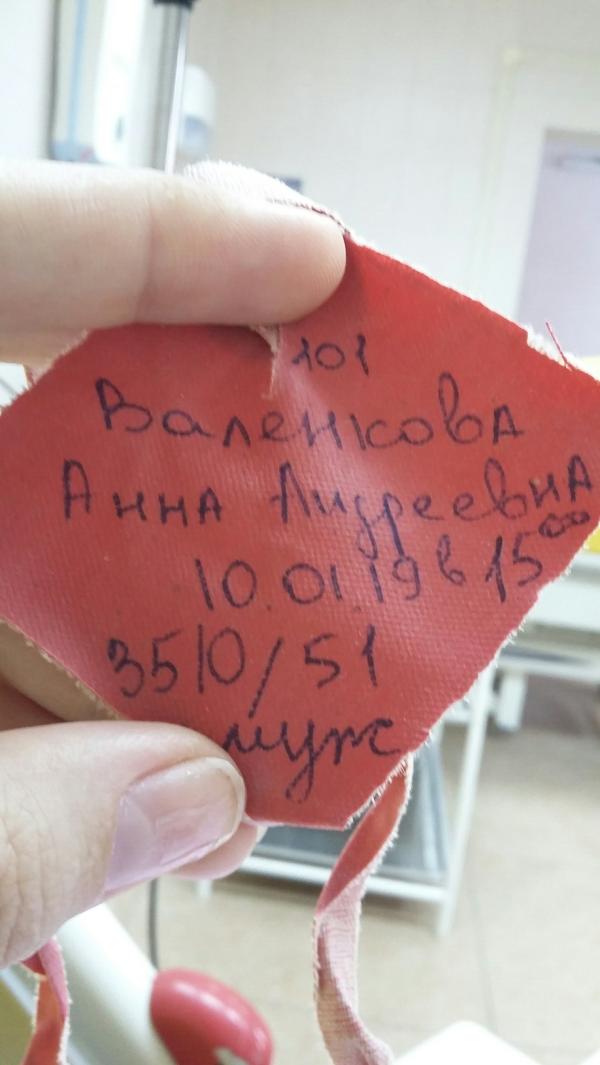 101
Валенкова
Анна Андреевна
10.01.19 в 15⁰⁰
3510/51
муж